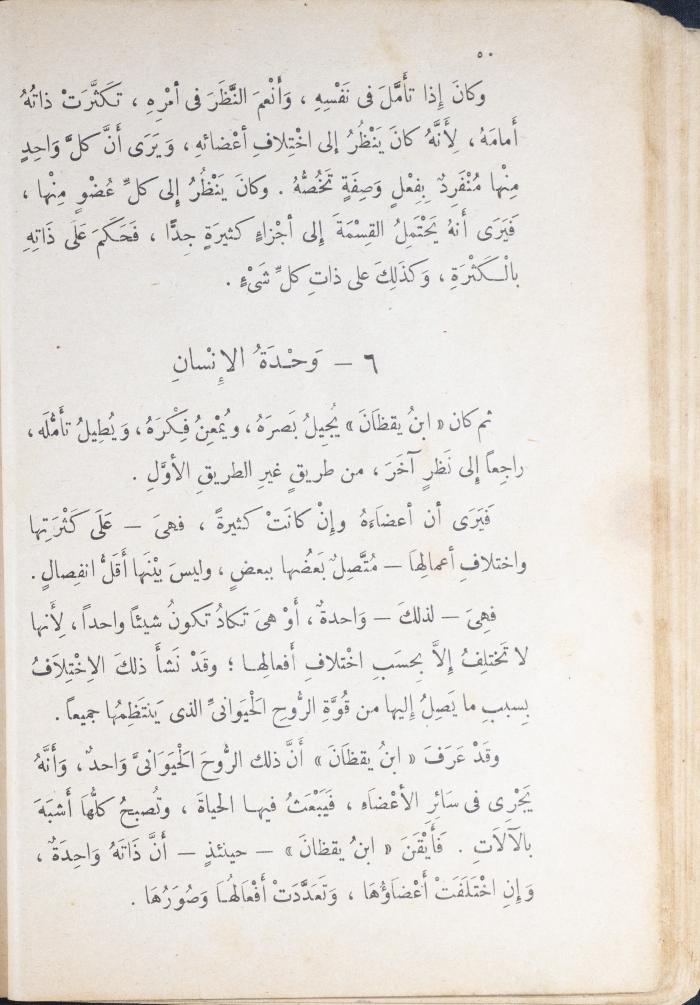 ٥٠
وكانَ إِذا تأمَّلَ فى نَفْسِهِ ، وَأَنْعمَ النَّظَرَ فى أمْرِهِ ، تكَثَّرَتْ ذاتُهُ
أمامَهُ ، لِأَنَّهُ كانَ يَنْظُرُ إلى اخْتِلافِ أعْضائهِ ، وَيَرَى أَنَّ كلَّ وَاحِدٍ
مِنْها مُنْفَرِدٌ بِفِعْلٍ وَصِفَةٍ تَخُصُّهُ . وكانَ يَنْظُرُ إلى كلِّ عُضْوٍ مِنْها ،
فَيَرَى أنهُ يَحْتَمِلُ القسْمَةَ إلى أجْزاءٍ كثيرَةٍ جِدًّا ، فَحَكَمَ عَلَى ذَاتِهِ
بالْـكَثْرَةِ ، وَكَذَلِكَ على ذاتِ كلِّ شَىْءٍ .
٦ – وَحْـدَةُ الإِنْسانِ
ثم كان « ابنُ يقظَانَ » يُجِيلُ بَصرَهُ ، ويُمْعِنُ فِكْرَهُ ، وَيُطِيلُ تأَمُّلَه ،
راجِعاً إلى نَظرٍ آخَرَ ، من طريقٍ غيرِ الطريقِ الأوَّلِ .
فَيَرَى أن أعضاءَهُ وإِنْ كانَتْ كثيرةً ، فهىَ – عَلَى كَثْرَتِها
واختلافِ أعمالِهاَ – مُتَّصِلٌ بَعضُها ببعضٍ ، وليسَ بيْنَها أقَلُّ انفِصالٍ .
فهِىَ – لذلكَ – وَاحدةٌ ، أَوْ هىَ تكادُ تكونُ شيئاً واحداً ، لِأَنها
لا تَختلِفُ إِلاَّ بِحسَبِ اختلافِ أفعالِهـا ؛ وقَدْ نَشأَ ذلكَ الِاخْتِلَافُ
بِسببِ ما يَصِلُ إليها من قُوَّةِ الرُّوحِ الْحَيوَانىِّ الذى يَنتَظِمُها جميعاً .
وقَدْ عَرَفَ « ابنُ يقظَانَ » أَنَّ ذلك الرُّوحَ الْحَيَوَانىَّ وَاحدٌ ، وَأَنَّهُ
يَجْرِى فى سَائرِ الأعْضَاءِ ، فَيَبْعَثُ فيهـا الحياةَ ، وتُصبحُ كلُّها أشبَهَ
بالآلَاتِ . فَأَيْقَنَ « ابنُ يقظانَ » – حينئذٍ – أَنَّ ذَاتَهُ وَاحِدَةٌ ،
وَإِنِ اخْتَلَفَتْ أَعْضَاؤُهَا ، وَتَعَدَّدَتْ أَفْعَالُهَـا وَصُوَرُهَا .